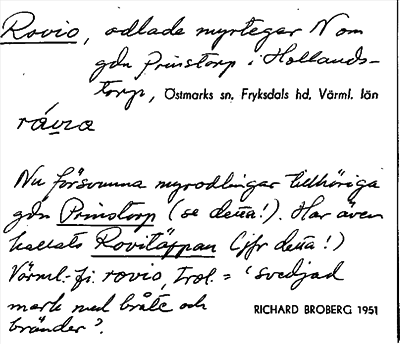 Rovio, odlade myrtegar N om
gdn Prinstorp i Hollands-
torp, Östmarks sn, Fryksdals hd, Värml. län
rávia
Nu försvunna myrodlingar tillhöriga
gdn Prinstorp (se detta!). Har även
kallats Rovitäppan (jfr detta!)
Värml.-fi. rovio, trol. = 'svedjad
mark med bråte och
bränder'.
RICHARD BROBERG 1951